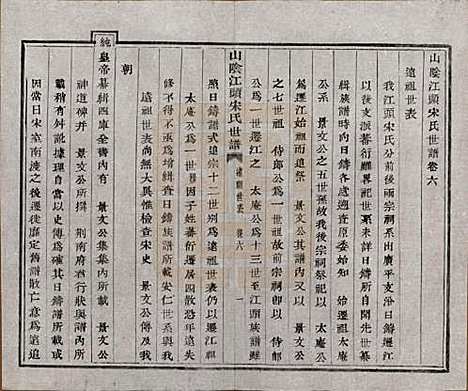 山陰江頭宋氏世譜卷六
遠祖世表
我江頭宋氏分前後兩宗祠系出廣平支汾日鑄遷江
以後支派蕃衍雖屢修時日鑄所自來宋先世纂
始遷祖太庵
公系 景文公之五世孫故我後宗祠祭祀以
爲遷江始祖而追祭 景文公其譜內又以 景文公
之七世祖 侍郎公爲一世祖故前宗祠即以 侍郎
公爲一世遷江之 太庵公爲十三世至江頭族譜
山陰江頭宋氏世譜
遠祖世表 卷六
一
照日鑄譜式遠宗十二世別爲遠祖世表仍以遷江始
太庵公爲一世祖因子姓分遷居散恐遠失
修不得不亟爲增緝查日鑄族譜所載安仁世系與我
遠祖世表小有異惟檢查宋史 景文公傳及我
朝
純
皇帝纂輯四庫全書內有 景文公集集內所載 景文公
神道碑并 景文公所撰 荆南府君行狀與譜內所
載稍有訛據理而言自應以史傳爲確其日鑄譜所載或
因當日宋室南渡之後遷徙靡定舊譜散亡意爲遠追